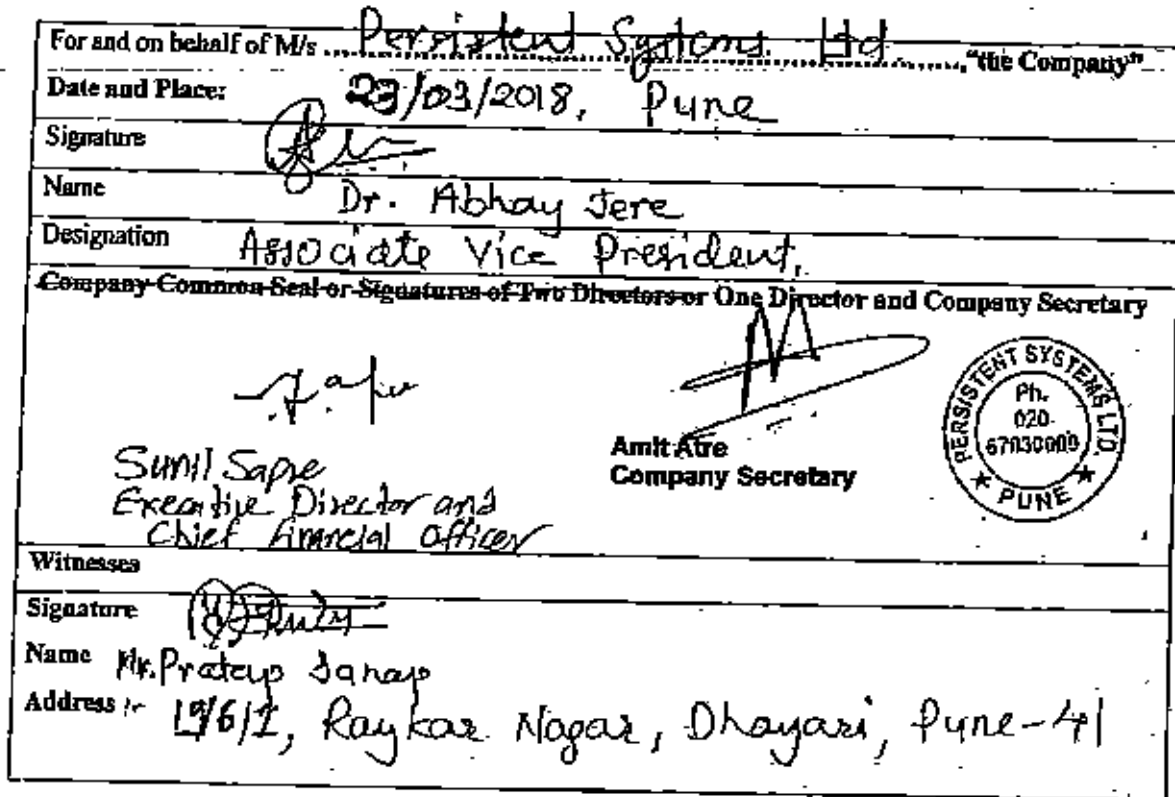 For and on behalf of M/s ..... Persistent Systems Ltd ....., "the Company"
Date and Place: 23/03/2018, Pune
Signature
Name Dr. Abhay Jere
Designation Associate Vice President,
Company Common Seal or Signatures of Two Directors or One Director and Company Secretary
Sunil Sapre
Executive Director and
Chief Financial Officer
Amit Atre
Company Secretary
PERSISTENT SYSTEMS LTD.
Ph.
020-
67030000
★ PUNE ★
Witnesses
Signature
Name Mr. Pratap Sanap
Address :- 19/6/1, Raykar Nagar, Dhayari, Pune-41